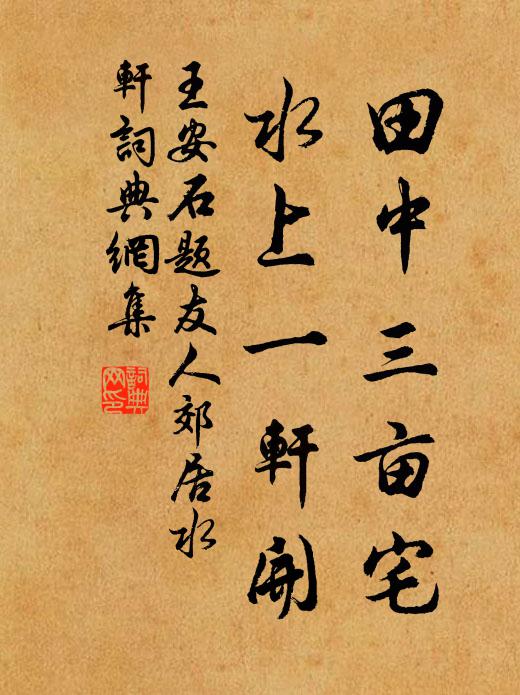 田中三亩宅
水上一軒開
王安石题友人郊居水
軒詞典網集
詞典
网印